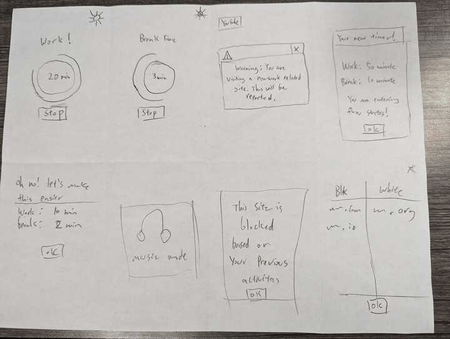 Work!
20 min
Stop
Break Time
3 min
Stop
Youtube
X
Warning: You are
visiting a non-work related
site. This will be
reported.
Your new timer!
Work: 50 minute
Break: 10 minute
You are entering
flow states!
OK
Oh no! let's make
this easier
Work: 10 min
break: 2 min
OK
music mode
This site is
blocked
based on
Your Previous
activities
OK
Blk
White
OK